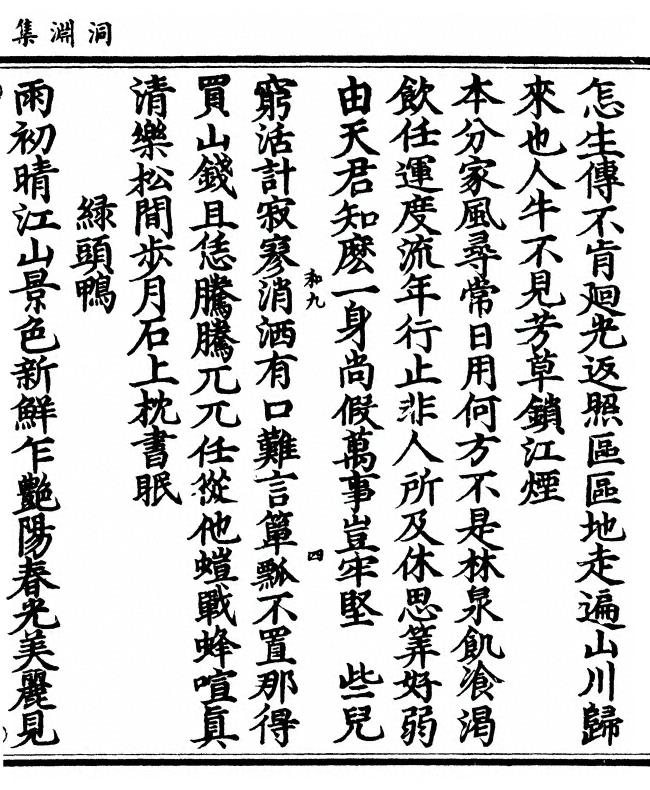 洞淵集
怎生傳不肯廻光返照區區地走遍山川歸
來也人牛不見芳草鎖江煙
本分家風尋常日用何方不是林泉飢飡渴
飲任運度流年行止非人所及休思筭好弱
由天君知麽一身尚假萬事豈牢堅　些兒
和九
四
窮活計寂寥消洒有口難言簞瓢不置那得
買山錢且恁騰騰兀兀任從他螘戰蜂喧真
清樂松間步月石上枕書眠
綠頭鴨
雨初晴江山景色新鮮乍艶陽春光美麗見